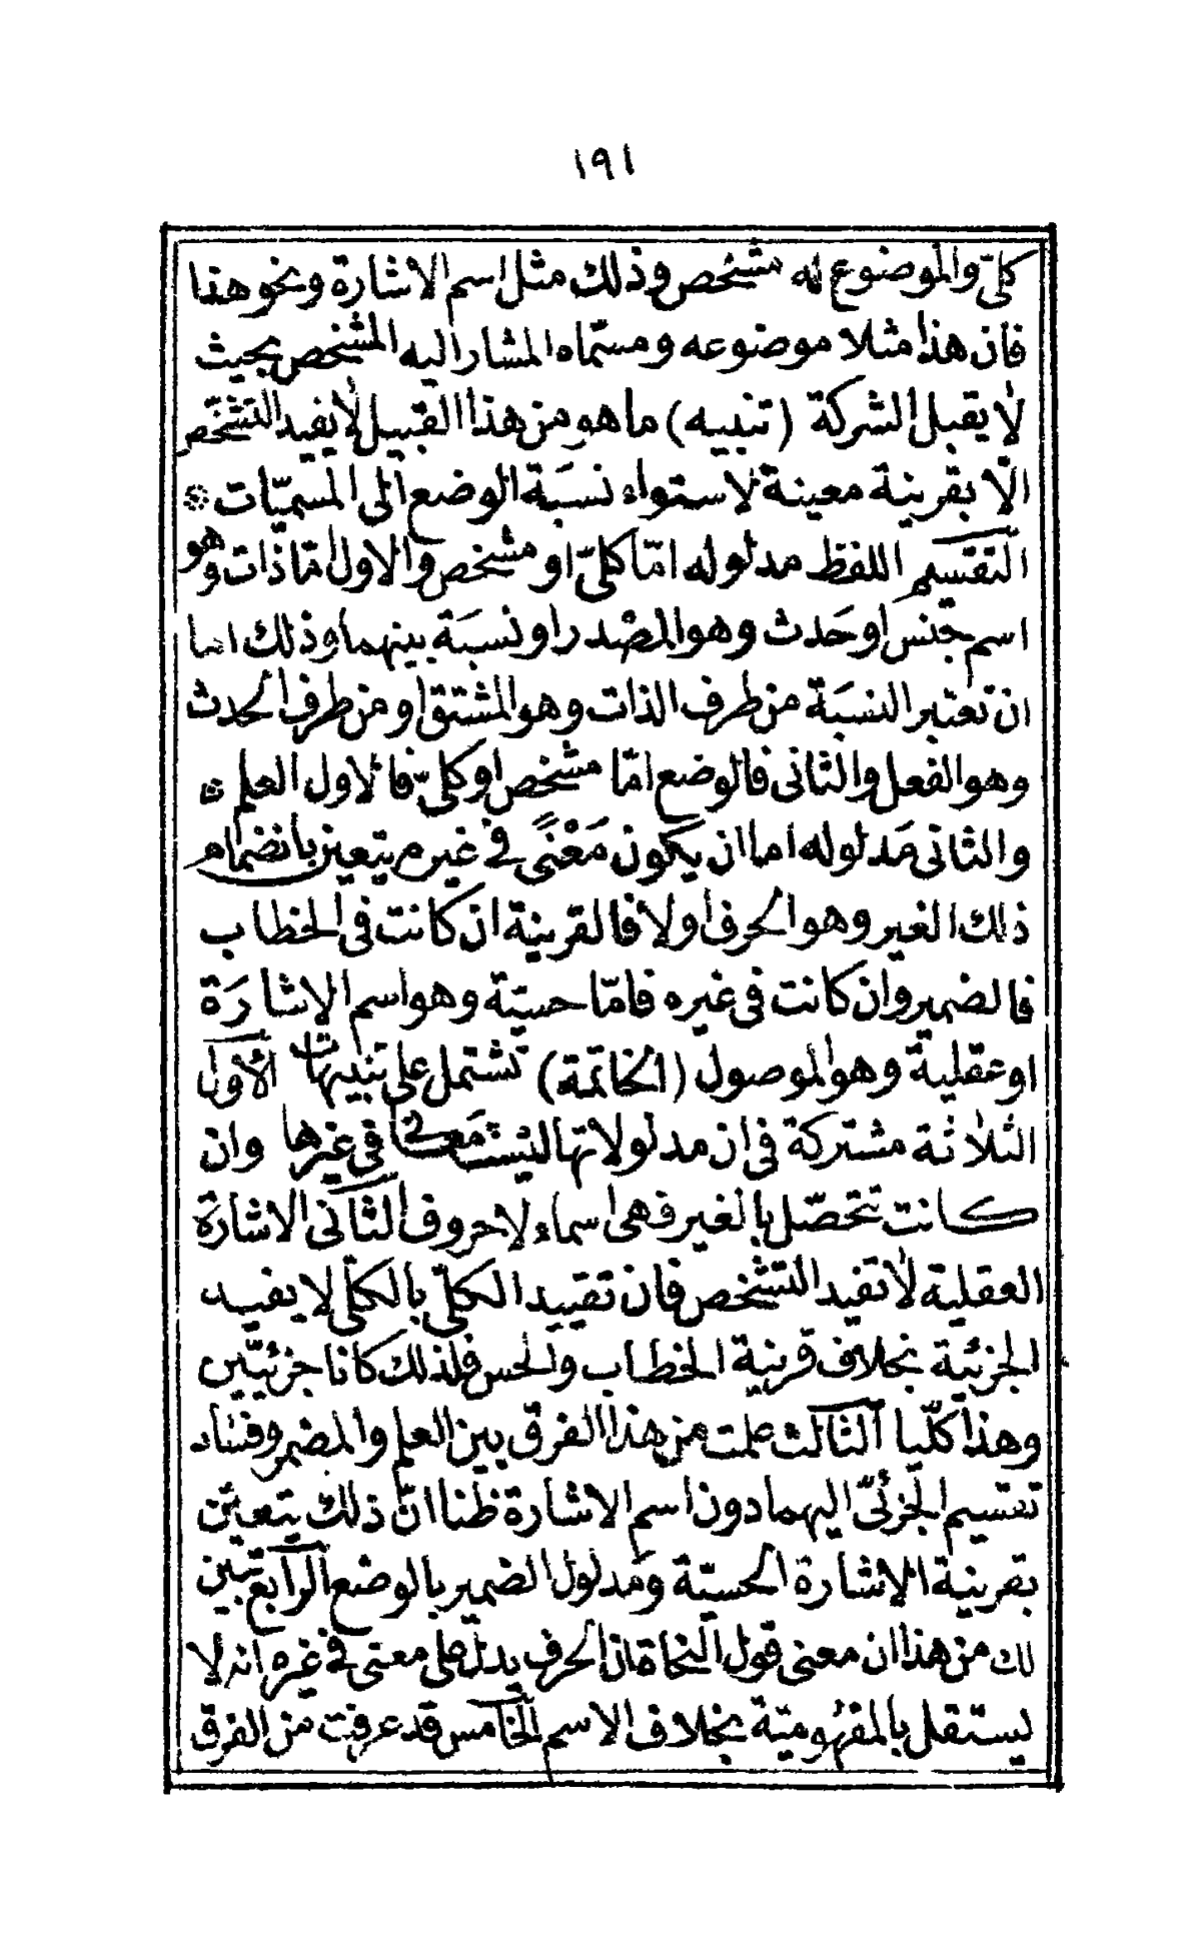 ١٩١
كلىّ والموضوع له مشخص وذلك مثل اسم الاشارة ونحو هذا
فان هذا مثلا موضوعه ومسمّاه المشار اليه المشخص بحيث
لا يقبل الشركة (تنبيه) ما هو من هذا القبيل لا يفيد التشخص
الّا بقرينة معينة لاستواء نسبَة الوضع الى المسميّات *
التقسيم اللفظ مدلوله امّا كلىّ او مشخص والاول امّا ذات وهو
اسم جنس او حَدث وهو المصْدر او نسبَة بينهما وذلك اما
ان تعتبر النسبَة من طرف الذات وهو المشتق او من طرف الحدث
وهو الفعل والثانى فالوضع امّا مشخص او كلىّ فالاول العلم *
والثانى مَدلوله اما ان يكون مَعْنًى فى غيره يتعين بانضمام
ذلك الغير وهو الحرف اولا فالقرينة ان كانت فى الخطاب
فالضمير وان كانت فى غيره فامّا حسيّة وهو اسم الاشارَة
او عقلية وهو الموصول (الخاتمة) تشتمل على تنبيهات الأول
الثلاثة مشتركة فى ان مدلولاتها ليسَت مَعَانى فى غيرها وان
كانت تتحصّل بالغير فهى اسماء لا حروف الثانى الاشارَة
العقلية لا تفيد التشخص فان تقييد الكلىّ بالكلىّ لا يفيد
الجزئية بخلاف قرينة الخطاب والحس فلذلك كانا جزئيّين
وهذا كلّيا الثالث علمت من هذا الفرق بين العلم والمضمر وفساد
تقسيم الجزئىّ اليهما دون اسم الاشارة ظنا انّ ذلك يتعيّن
بقرينة الاشارة الحسيّة ومَدلول الضمير بالوضع الرابع تبين
لك من هذا ان معنى قول النحاة ان الحرف يدلّ على معنى فى غيره انه لا
يستقل بالمفهوميّة بخلاف الاسم الخامس قد عرفت من الفرق